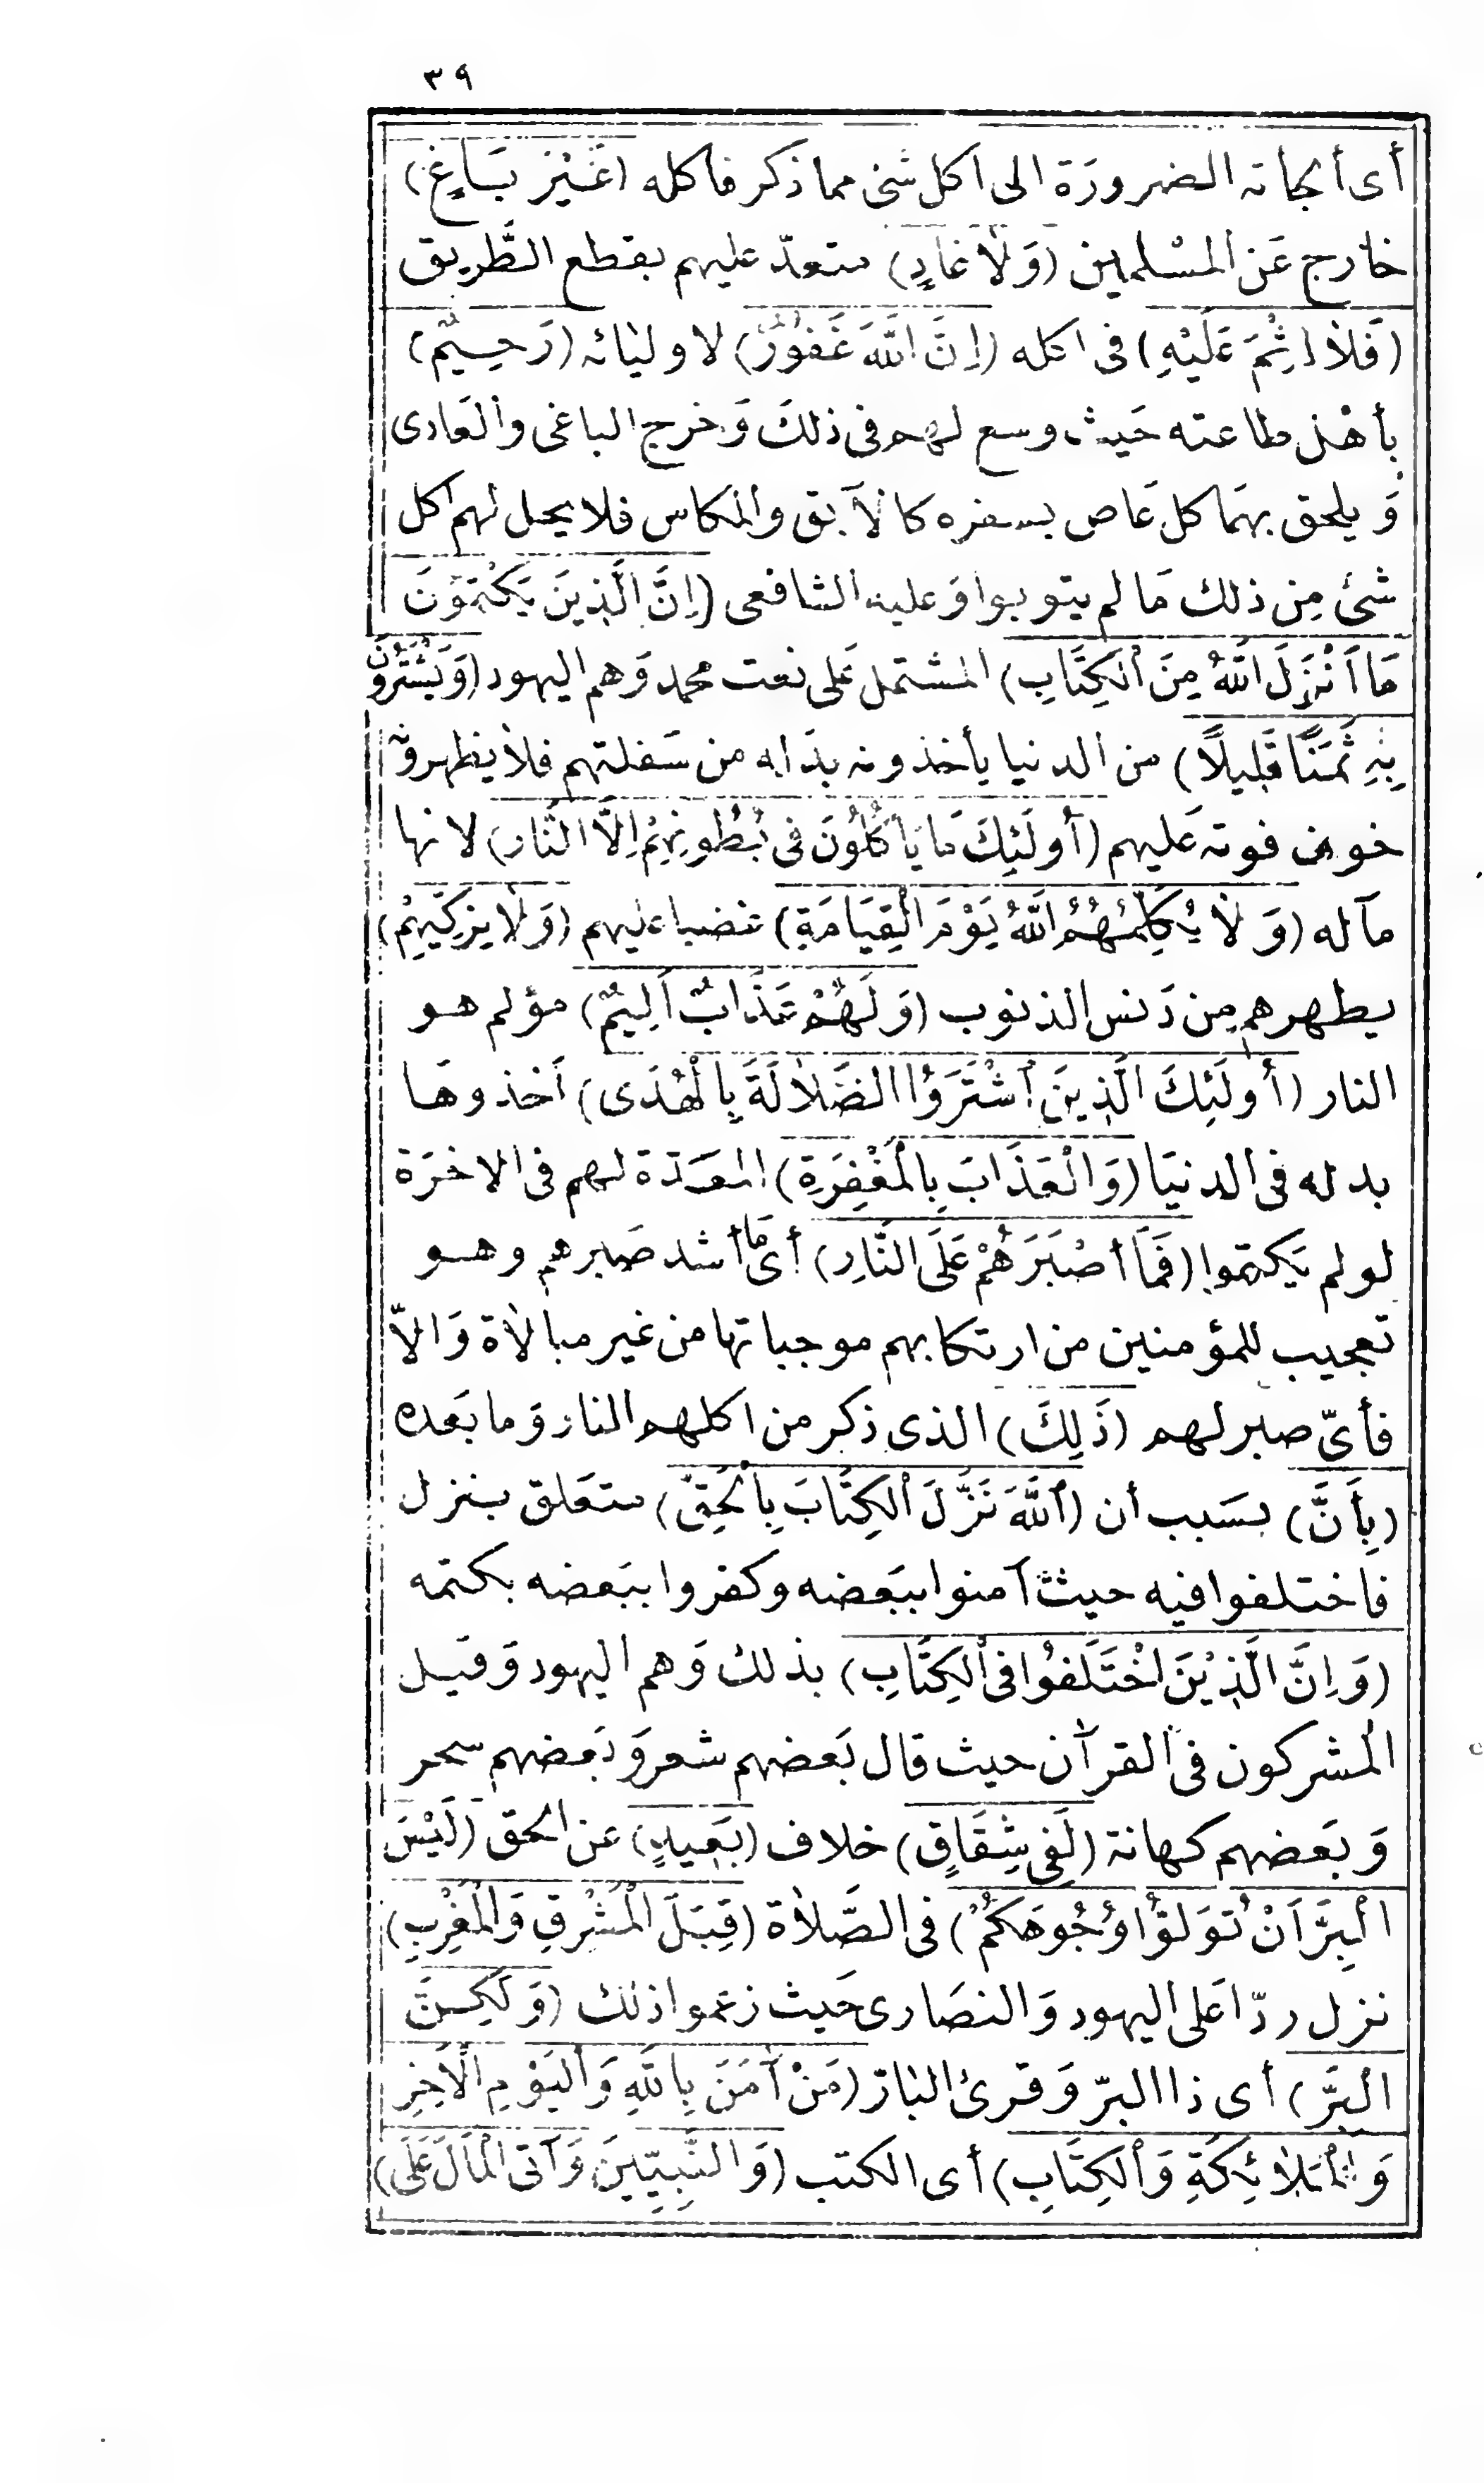 ٣٩
أى ألجأته الضرورة الى اكل شئ مما ذكر فاكله (غَيْرَ بَاغٍ)
خارج عَن المسْلمين (وَلاَ عَادٍ) متعدّ عليهم بقطع الطَّريق
(فَلاَ اِثْمَ عَلَيْهِ) فى اكله (اِنَّ اللَّهَ غَفُورٌ) لاوليائه (رَحِيمٌ)
بأهْل طاعته حَيث وسع لهم فى ذلكَ وَخرج الباغى والعَادى
وَيلحق بهمَا كل عَاص بسفره كالآبق والمكاس فلا يحل لهم اكل
شئ مِن ذلك مَا لم يتوبوا وَعليه الشافعى (اِنَّ الَّذِينَ يَكْتُمُونَ
مَا اَنْزَلَ اللَّهُ مِنَ الْكِتَابِ) المشتمل عَلى نعت محمد وَهم اليهود (وَيَشْتَرُونَ
بِهِ ثَمَنًا قَلِيلاً) من الدنيا يأخذونه بدَله من سَفلتهم فلا يظهرونه
خوف فوته عَليهم (أُولَئِكَ مَا يَأْكُلُونَ فى بُطُونِهِمْ اِلاَّ النَّارَ) لانها
مآله (وَلاَ يُكَلِّمُهُمُ اللَّهُ يَوْمَ الْقِيَامَةِ) غضبا عليهم (وَلاَ يُزَكِّيهِمْ)
يطهرهم مِن دَنس الذنوب (وَلَهُمْ عَذَابٌ اَلِيمٌ) مؤلم هو
النار (أُولَئِكَ الَّذِينَ اشْتَرَوُا الضَّلاَلَةَ بِالْهُدَى) اَخذوهَا
بدله فى الدنيَا (وَالْعَذَابَ بِالْمَغْفِرَةِ) المعَدّة لهم فى الاخرَة
لو لم يَكتموا (فَمَا أَصْبَرَهُمْ عَلَى النَّارِ) أى مَا أشد صَبرهم وهو
تعجيب للمؤمنين من ارتكابهم موجباتها من غير مبالاة وَالاّ
فأىّ صبر لهم (ذَلِكَ) الذى ذكر من اكلهم النار وَما بَعده
(بِأَنَّ) بسَبب أن (اللَّهَ نَزَّلَ الْكِتَابَ بِالْحَقِّ) متعَلق بنزل
فاختلفوا فيه حيث آمنوا ببَعضه وكفروا ببَعضه بكتمه
(وَاِنَّ الَّذِيْنَ اخْتَلَفُوا فى الْكِتَابِ) بذلك وَهم اليهود وَقيل
المشركون فى القرآن حيث قال بَعضهم شعر وَبَعضهم سحر
وَبَعضهم كهانة (لَفِى شِقَاقٍ) خلاف (بَعِيدٍ) عن الحق (لَيْسَ
الْبِرَّ اَنْ تُوَلُّوا وُجُوهَكُمْ) فى الصَّلاة (قِبَلَ الْمَشْرِقِ وَالْمَغْرِبِ)
نزل ردّا عَلى اليهود وَالنصَارى حَيث زعموا ذلك (وَلَكِنَّ
الْبِرَّ) أى ذا البرّ وَقرئ البَارّ (مَنْ آمَنَ بِاللَّهِ وَالْيَوْمِ الْآخِرِ
وَالْمَلاَئِكَةِ وَالْكِتَابِ) أى الكتب (وَالنَّبِيِّينَ وَآتَى الْمَالَ عَلَى)